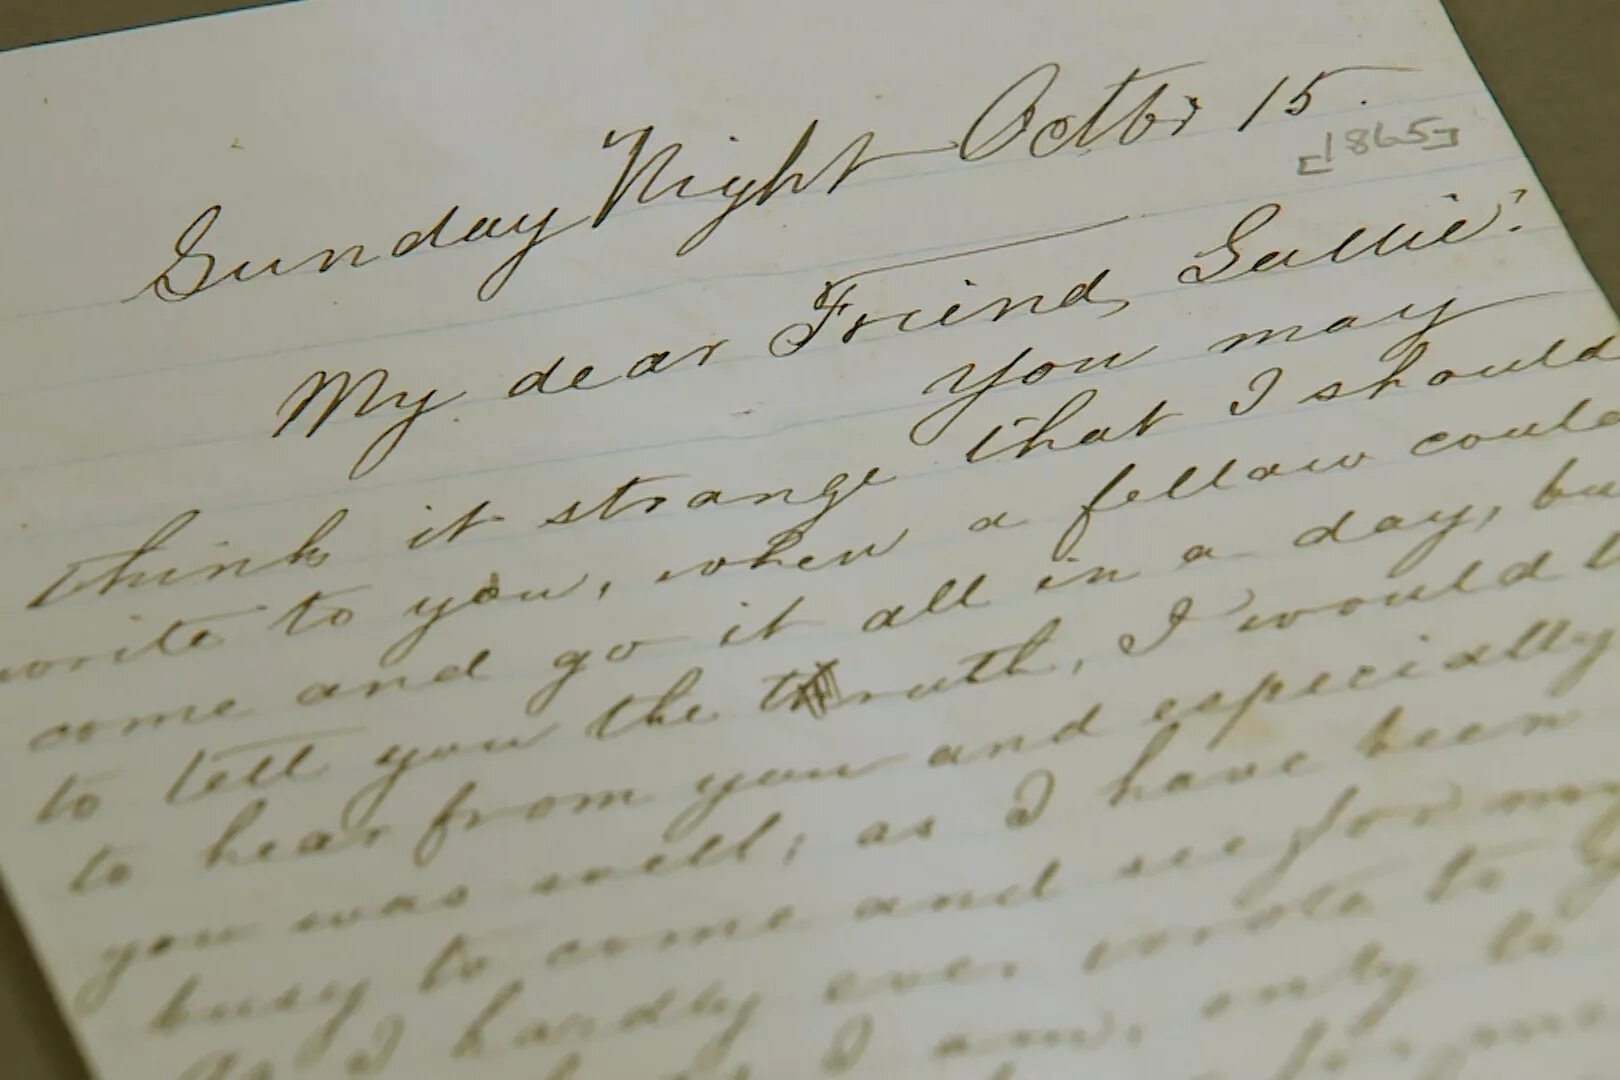 Sunday Night Octbr 15.
[1865]
My dear Friend, Sallie:
You may
think it strange that I should
write to you, when a fellow could
come and go it all in a day, bu
to tell you the truth, I would
to hear from you and especially
you was well; as I have been
busy to come and see for my
As I hardly ever wrote to
I am, only to
for me